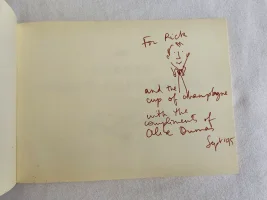 For Rick
and the
cup of champagne
with the
compliments of
Alix Dumas
Sept 95